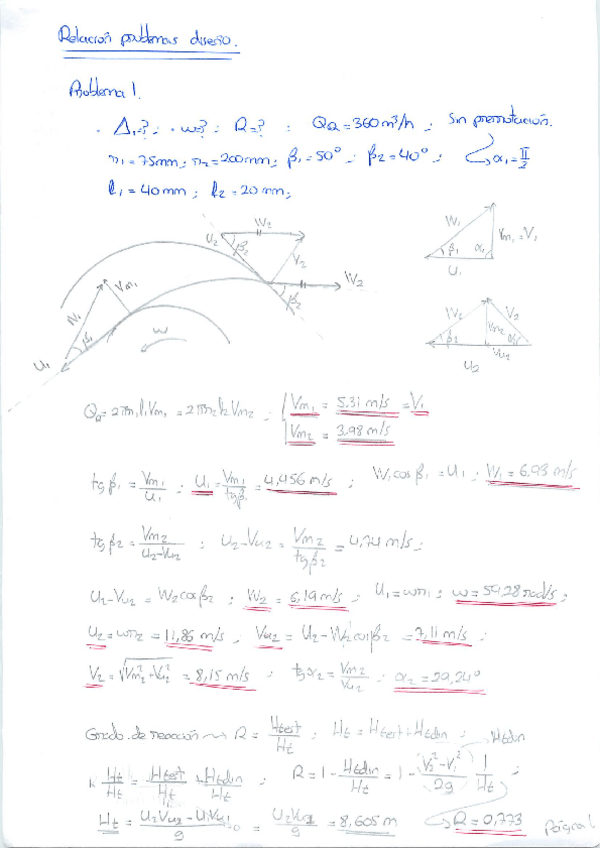 Relación problemas diseño.
Problema 1.
· Δ₁=? ; · w? ; R=? ; Q_R = 360 m³/h ; Sin prerrotación.
r₁ = 75mm ; r₂ = 200mm ; β₁ = 50° ; β₂ = 40° ; α₁ = π/2
l₁ = 40 mm ; l₂ = 20 mm ;
W₂
U₂ β₂ V₂
W₂
β₂
W₁ Vm₁
β₁
U₁
w
W₁ Vm₁ = V₁
β₁ α₁
U₁
W₂ Vm₂ V₂
β₂ Vu₂ α₂
U₂
Q_R = 2πr₁l₁Vm₁ = 2πr₂l₂Vm₂ ; { Vm₁ = 5.31 m/s = V₁
Vm₂ = 3.98 m/s
tgβ₁ = Vm₁/U₁ ; U₁ = Vm₁/tgβ₁ = 4,456 m/s ; W₁cosβ₁ = U₁ ; W₁ = 6,93 m/s
tgβ₂ = Vm₂/(U₂-Vu₂) ; U₂-Vu₂ = Vm₂/tgβ₂ = 4,74 m/s ;
U₂-Vu₂ = W₂cosβ₂ ; W₂ = 6,19 m/s ; U₁ = wr₁ ; w = 59,28 rad/s ;
U₂ = wr₂ = 11,86 m/s ; Vu₂ = U₂ - W₂cosβ₂ = 7,11 m/s ;
V₂ = √(Vm₂² + Vu₂²) = 8,15 m/s ; tgα₂ = Vm₂/Vu₂ ; α₂ = 29,24°
Grado de reacción ~> R = Htest/Ht ; Ht = Htest + Htdin ; Htdin
Ht/Ht = Htest/Ht + Htdin/Ht ; R = 1 - Htdin/Ht = 1 - (V₂² - V₁²)/2g · 1/Ht ;
Ht = (U₂Vu₂ - U₁Vu₁)/g = U₂Vu₂/g = 8,605 m R = 0,773 Página 1